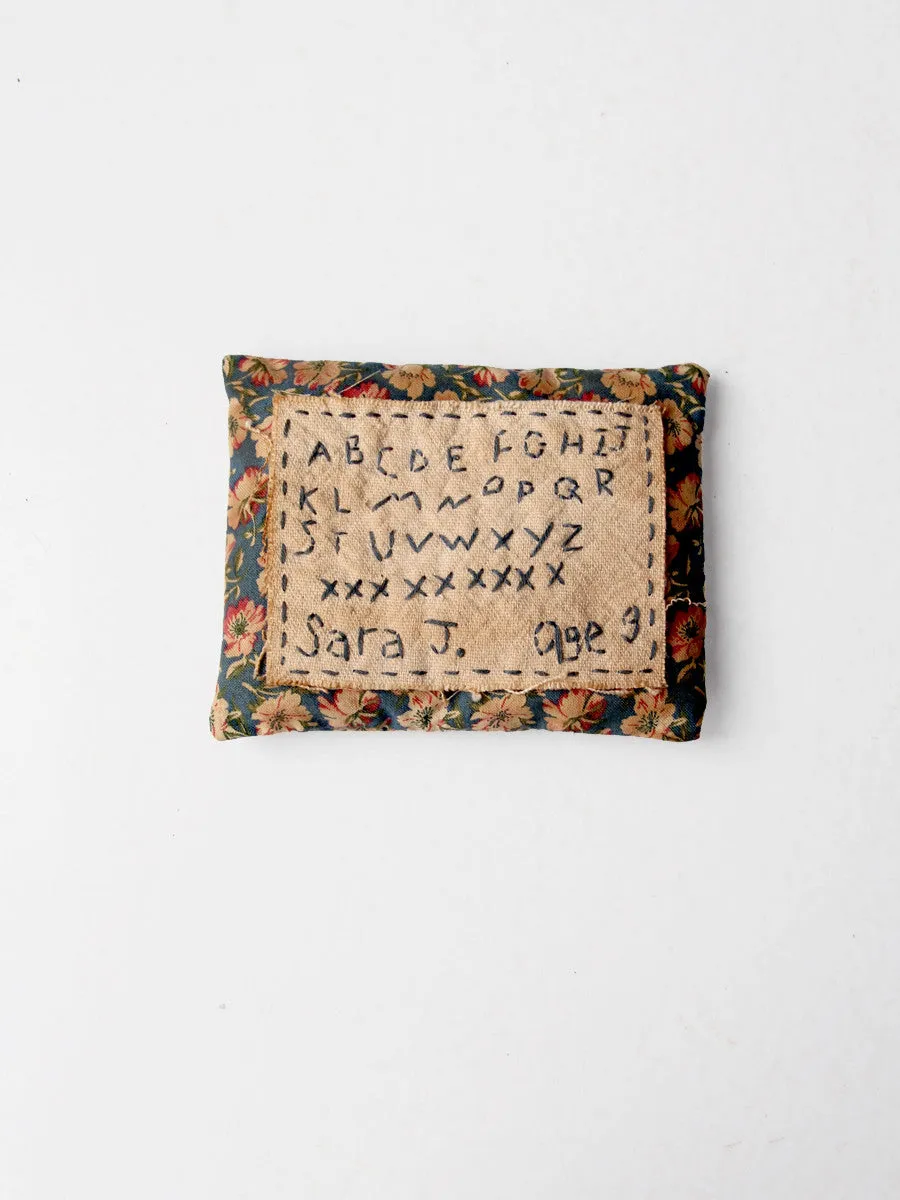 ABCDEFGHIJ
KLMNOPQR
STUVWXYZ
xxx xx xxxx x
Sara J. Age 3